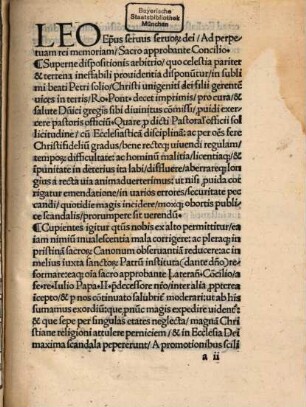 Bayerische
Staatsbibliothek
München
LEO Ep̃us seruus seruoꝝ dei / Ad perpe
tuam rei memoriam / Sacro approbante Concilio.
¶Superne dispositionis arbitrio / quo celestia pariter
& terrena ineffabili prouidentia disponũtur / in subli
mi beati Petri solio / Christi unigeniti dei filii gerentẽ
uices in terris / Ro. Pont. decet imprimis / pro cura / &
salute Dñici gregis sibi diuinitus cõmissi / puidi exer
cere pastoris officiũ. Quare ꝓ dicti Pastoral' officii sol
licitudine / cũ Ecclesiastica disciplinã: ac per oẽs fere
Christifideliũ gradus / bene recteqꝫ uiuendi regulam /
tempoꝝ difficultate: ac hominũ malitia / licentiaqꝫ / &
ipunitate in deterius ita labi / diffluere / aberrareqꝫ lon
gius a recta uia animaduertimus: ut nisi puida cot
rigatur emendatione / in uarios errores / securitate pec
candi / quotidie magis incidere / moxqꝫ obortis publi
ce scandalis / prorumpere sit uerendũ.
¶Cupientes igitur qtũs nobis ex alto permittitur / ea
iam nimiũ inualescentia mala corrigere: ac pleraqꝫ in
pristinã sacroꝝ Canonum obseruantiã reducere: ac in
melius iuxta sanctoꝝ Patrũ instituta / (dante dño) re
formare: eaqꝫ oĩa sacro approbante Lateranẽ. Cõcilio / a
fe. re. Iulio Papa. II. p̃decessore nr̃o / inter alia p̃pterea
icepto / & p nos cõtinuato salubriter moderari: ut ab his
sumamus exordiũ: que pnũc magis expedire uident' / &
que sepe per singulas etates neglecta / magnã Chri
stiane religioni attulere perniciem / & in Ecclesia Dei
maxima scandala pepererunt / A promotionibus scili
a ii